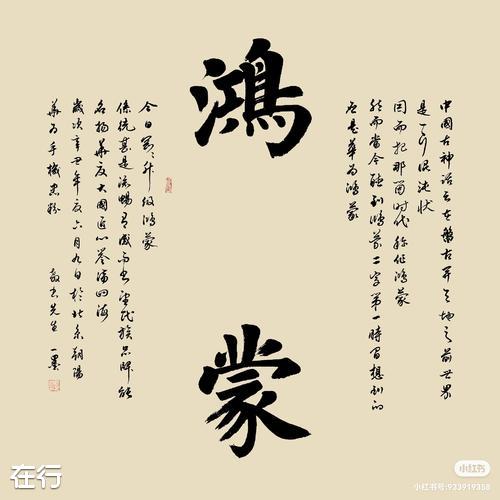 中國古神話言在盤古開天地之前世界
是一片混沌狀
因而把那個時代稱作鴻蒙
然而當今聽到鴻蒙二字第一時間想到的
應是華為鴻蒙
鴻蒙
今日升级鴻蒙
係統甚是流暢有感而書望民族品牌能
名揚華夏大國匠心譽滿四海
歲次辛丑年夏六月九日於北京朝陽
華為手機忠粉 先生一墨
在行
小红书
小红书号:933919358